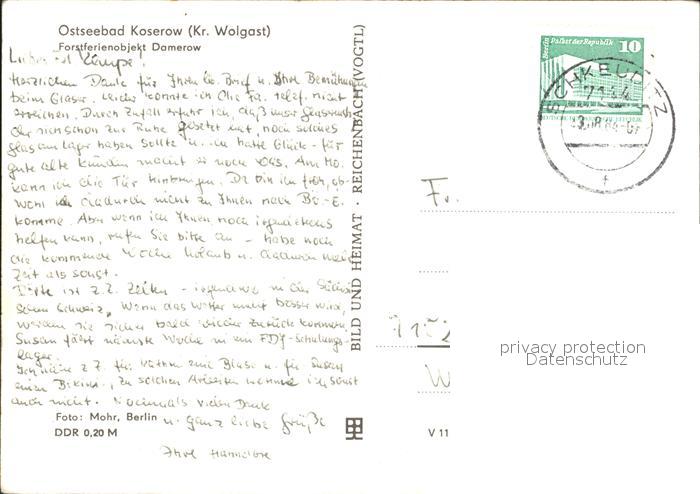 Ostseebad Koserow (Kr. Wolgast)
Forstferienobjekt Damerow
Herzlichen Dank für Ihren lb. Brief u. Ihre Bemühungen
beim Glaser. Leider konnte ich die Fa. telef. nicht
erreichen. Durch Zufall erfuhr ich, daß unser Glasermstr.
der sich schon zur Ruhe gesetzt hat, noch solches
Glas am Lager haben sollte u. ich hatte Glück - für
gute alte Kunden macht er noch was. Am Mo.
kann ich die Tür hinbringen. Da bin ich froh, ob-
wohl ich dadurch nicht zu Ihnen nach Bö.-E.
komme. Aber wenn ich Ihnen noch irgendetwas
helfen kann, rufen Sie bitte an - habe noch
die kommende Woche Urlaub u. dadurch mehr
Zeit als sonst.
ist z.Z. Zelten - irgendwo in der Sächsi-
schen Schweiz. Wenn das Wetter nicht besser wird,
werden sie sicher bald wieder zurück kommen.
Susan fährt nächste Woche in ein FDJ-Schulungs-
lager.
Ich nähe z.Z. für Kathrin eine Bluse u. für Susan
einen Bikini, zu solchen Arbeiten komme ich sonst
auch nicht. Nochmals vielen Dank
u. ganz liebe Grüße
Ihre Hannelore
Foto: Mohr, Berlin
DDR 0,20 M
BILD UND HEIMAT · REICHENBACH (VOGTL)
V 11
Berlin Palast der Republik
10
SCHKEUDITZ
7144
Fr.
7152
W
privacy protection
Datenschutz